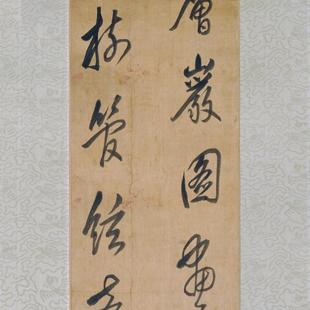 層巖圖畫
樹管絃